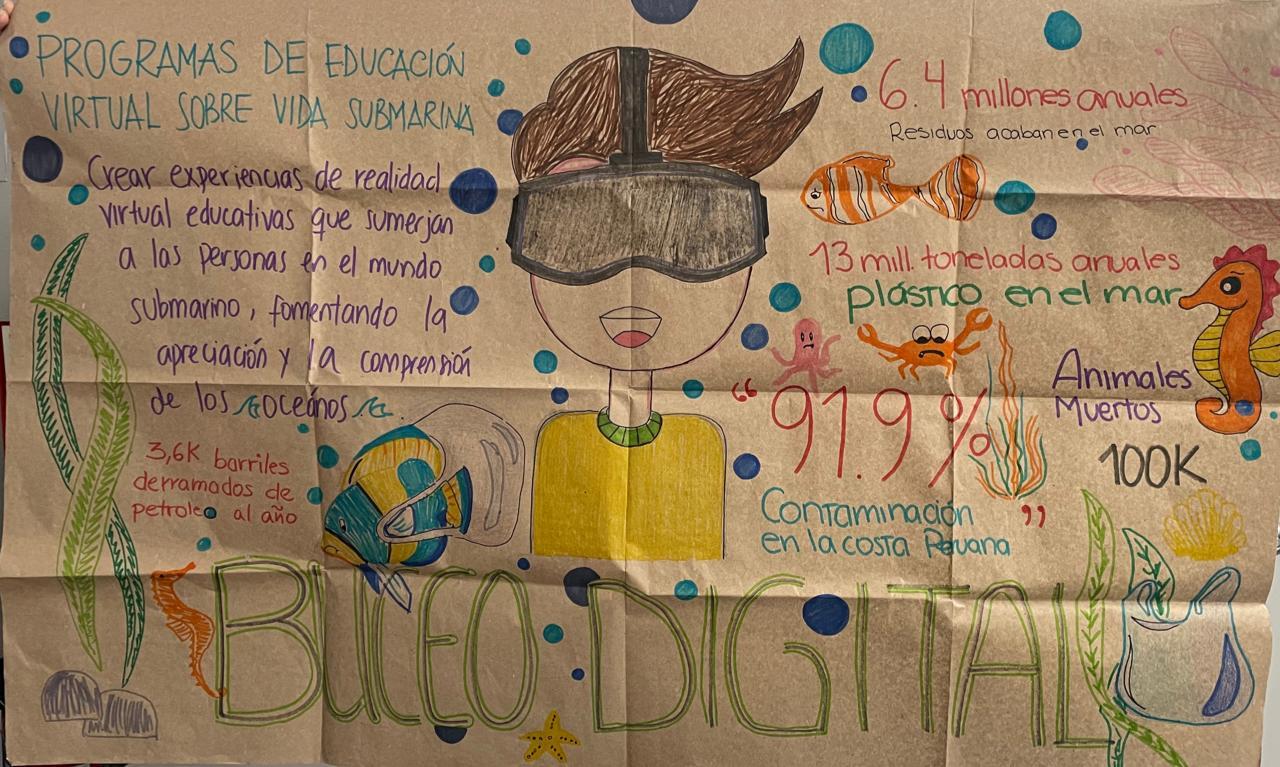 PROGRAMAS DE EDUCACIÓN
VIRTUAL SOBRE VIDA SUBMARINA
Crear experiencias de realidad
virtual educativas que sumerjan
a las personas en el mundo
submarino, fomentando la
apreciación y la comprensión
de los oceános.
3,6K barriles
derramados de
petroleo al año
6.4 millones anuales
Residuos acaban en el mar
13 mill. toneladas anuales
plástico en el mar
"91.9%
Contaminación"
en la costa Peruana
Animales
Muertos
100K
BUCEO DIGITAL